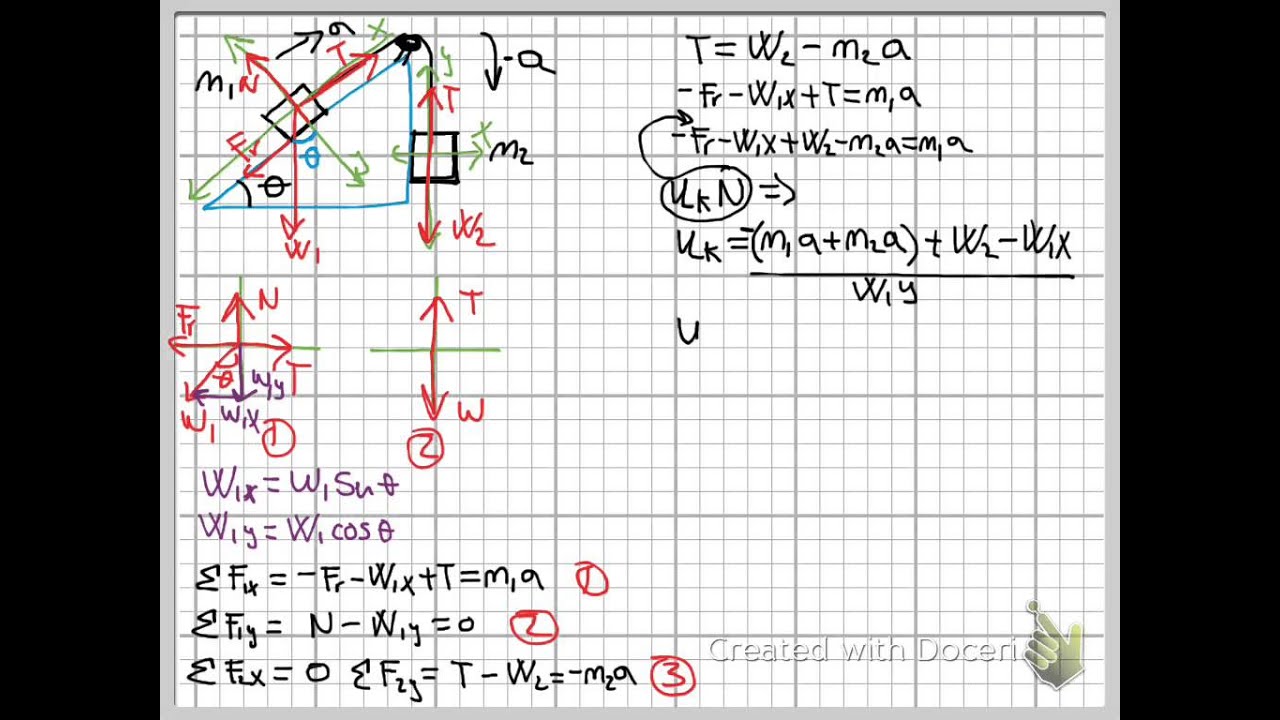 a
x
T
y
-a
m₁
N
T
Fr
θ
x
m₂
θ
W₁
W₂
N
Fr
T
T
θ
W₁y
W₁
W₁x
W
①
②
W₁x = W₁ Sin θ
W₁y = W₁ cos θ
Σ F₁x = -Fr - W₁x + T = m₁a ①
Σ F₁y = N - W₁y = 0 ②
Σ F₂x = 0 Σ F₂y = T - W₂ = -m₂a ③
T = W₂ - m₂a
-Fr - W₁x + T = m₁a
-Fr - W₁x + W₂ - m₂a = m₁a
uₖN ⇒
uₖ = -(m₁a + m₂a) + W₂ - W₁x
W₁y
u
Created with Doceri